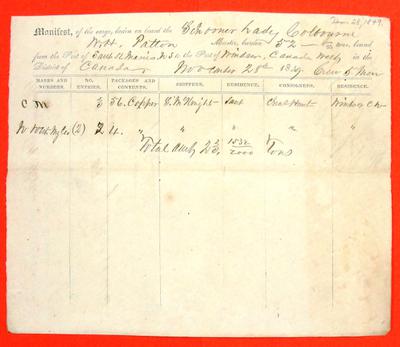 Nov. 28, 1849
Manifest, of the cargo, laden on board the Schooner Lady Colbourne
Wm. Patton Master, burden 52 tons, bound
from the Port of Sault St Maries U.S. to the Port of Windsor, Canada West in the
District of Canada November 28th 1849 Crew 5 Men
MARKS AND NUMBERS. NO. ENTRIES. PACKAGES AND CONTENTS. SHIPPERS. RESIDENCE. CONSIGNEES. RESIDENCE.
C M 3 56. Copper Saut Windsor C.W.
(2) 2 4. " " " "
Total 2 1832/2000 Tons